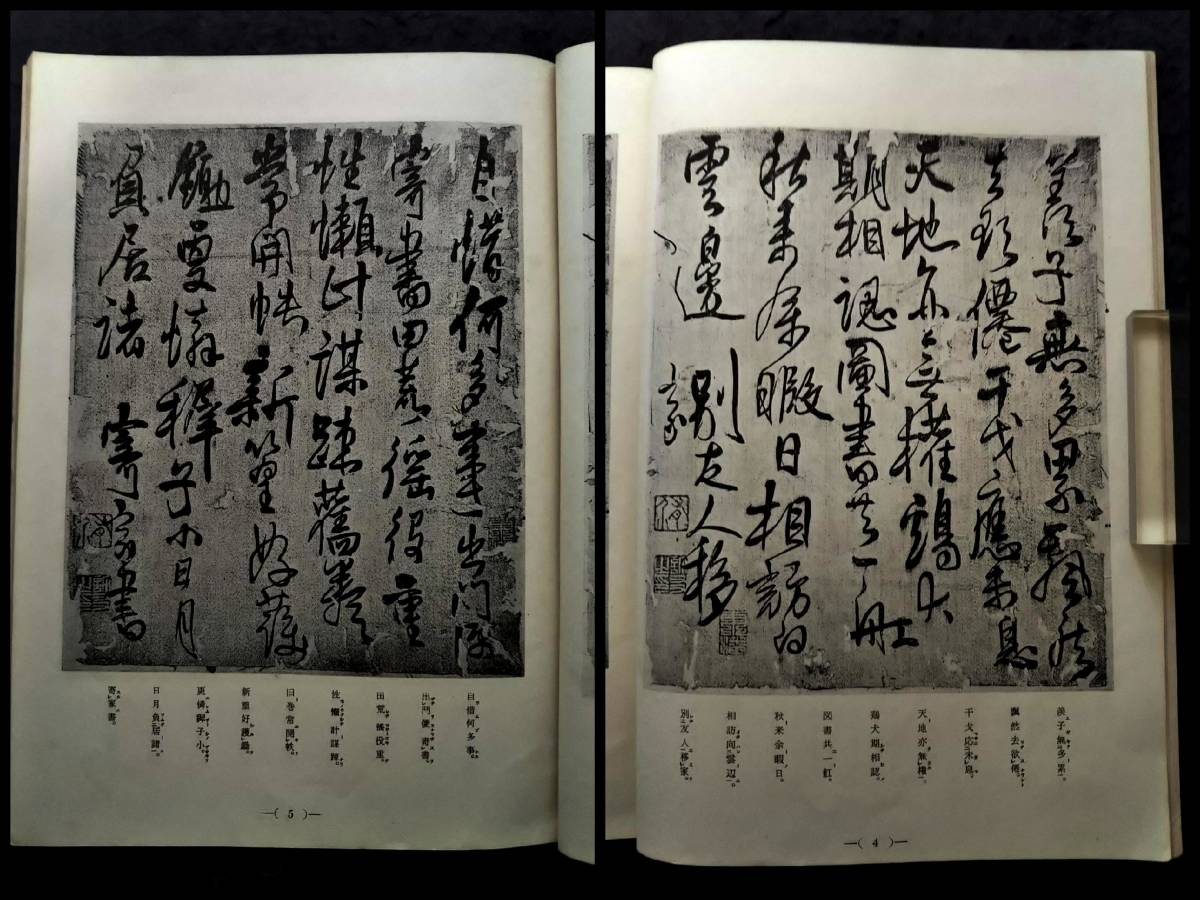 羨子無多累飄然
去欲僊干戈應未息
天地亦無權鶏犬
期相認圖書共一舡
秋来余暇日相訪白
雲邊 別友人移
家
羨子無多累。
飄然去欲僊。
干戈応未息。
天地亦無権。
鶏犬期相認。
図書共一舡。
秋来余暇日。
相訪向雲辺。
別友人移家。
—( 4 )—
自惜何多事出門便
寄書田荒徭役重
性懶計謀踈舊卷
常開帙新篁好護
鋤更憐穉子小日月
負居諸 寄家書
白惜何多事。
出門便寄書。
田荒徭役重。
性懶計謀踈。
旧巻常開帙。
新篁好護鋤。
更憐穉子小。
日月負居諸。
寄家書。
—( 5 )—